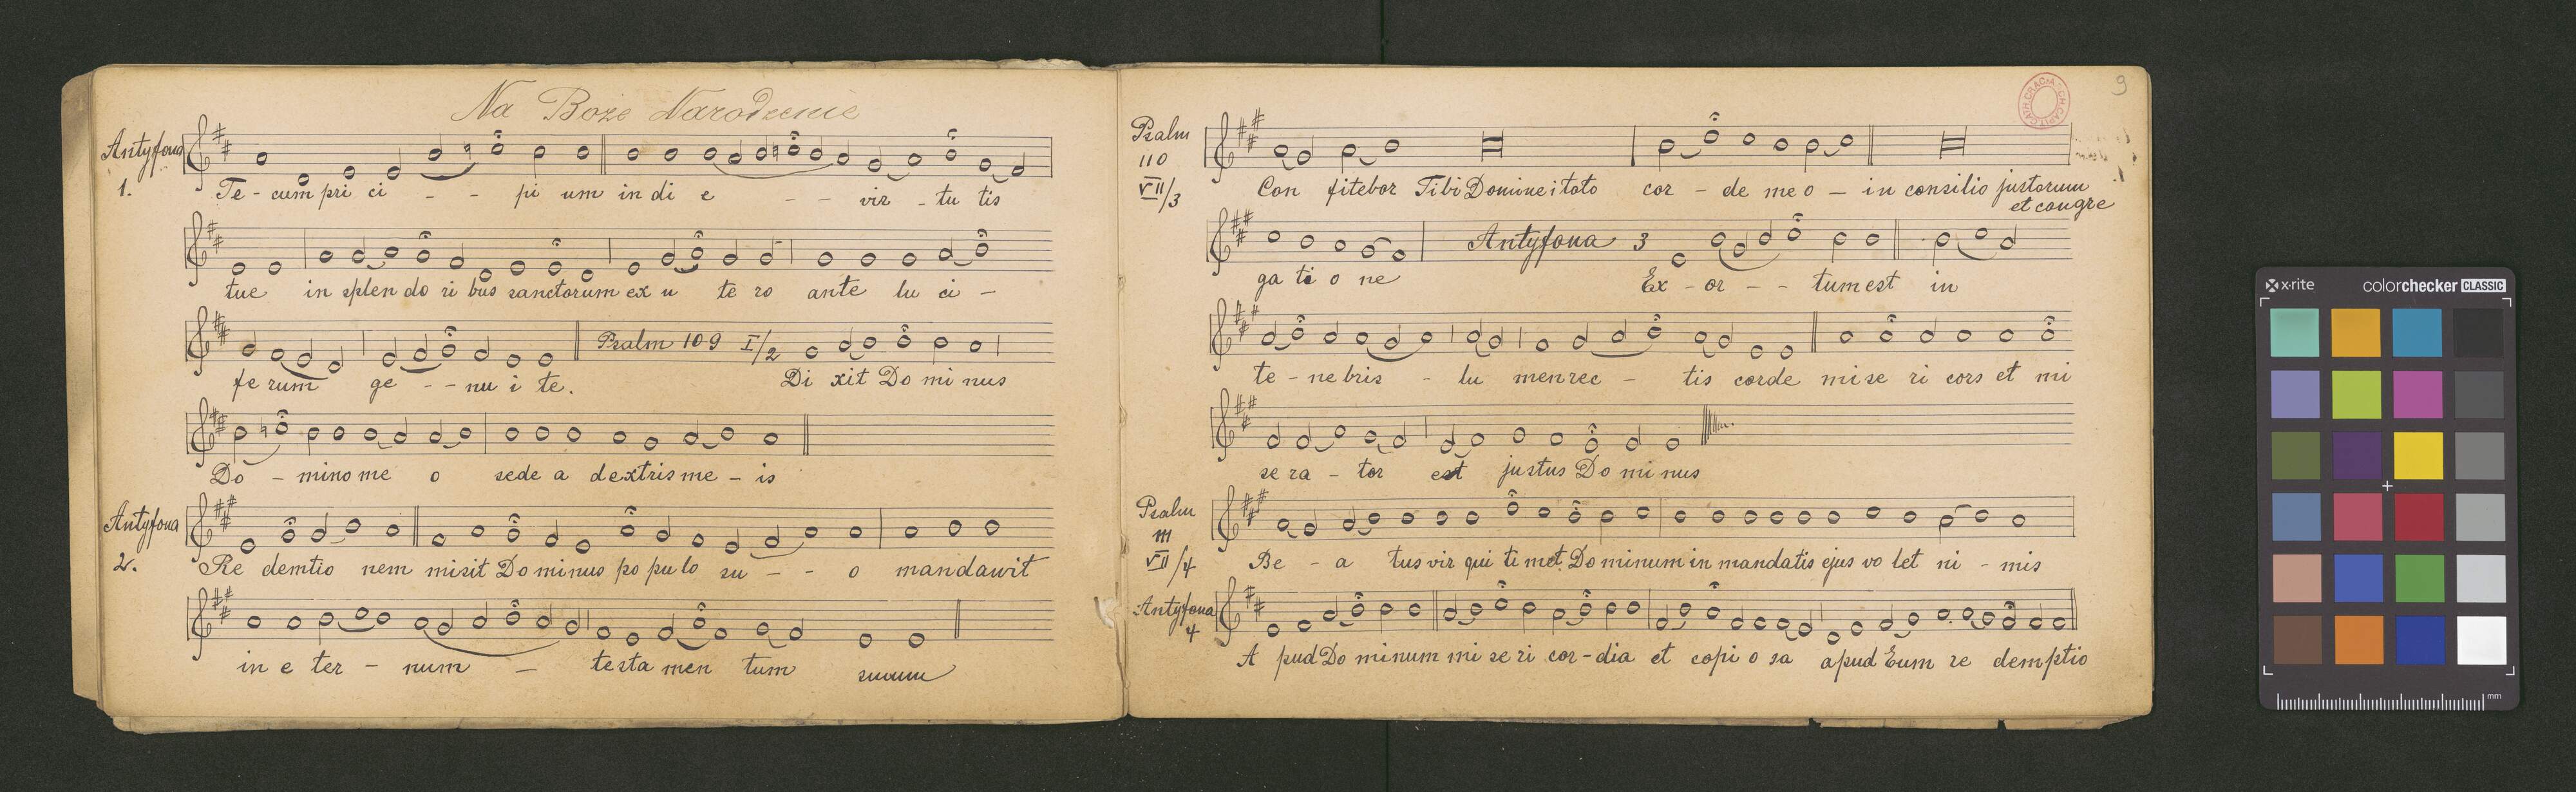 Na Boże Narodzenie
Antyfona
1.
Te - cum pri ci - - pi um in di e - - vir - tu tis
tue in splen do ri bus sanctorum ex u te ro ante lu ci -
fe rum ge - - nu i te.
Psalm 109 I/2
Di xit Do mi nus
Do - mino me o sede a dextris me - is
Antyfona
2.
Re demtio nem misit Do minus po pu lo su - - o mandawit
in e ter - num - testa men tum suum
9
Psalm
110
VII/3
Con fitebor Tibi Domine i toto cor - de me o - in consilio justorum
et congre
Antyfona 3
ga ti o ne Ex - or - - tum est in
te - ne bris - lu men rec - tis corde mi se ri cors et mi
se ra - tor est justus Do mi nus
Psalm
111
VII/4
Be - a tus vir qui ti met Do minum in mandatis ejus vo let ni - mis
Antyfona
4
A pud Do minum mi se ri cor - dia et copi o sa apud Eum re demptio
x·rite colorchecker CLASSIC
mm